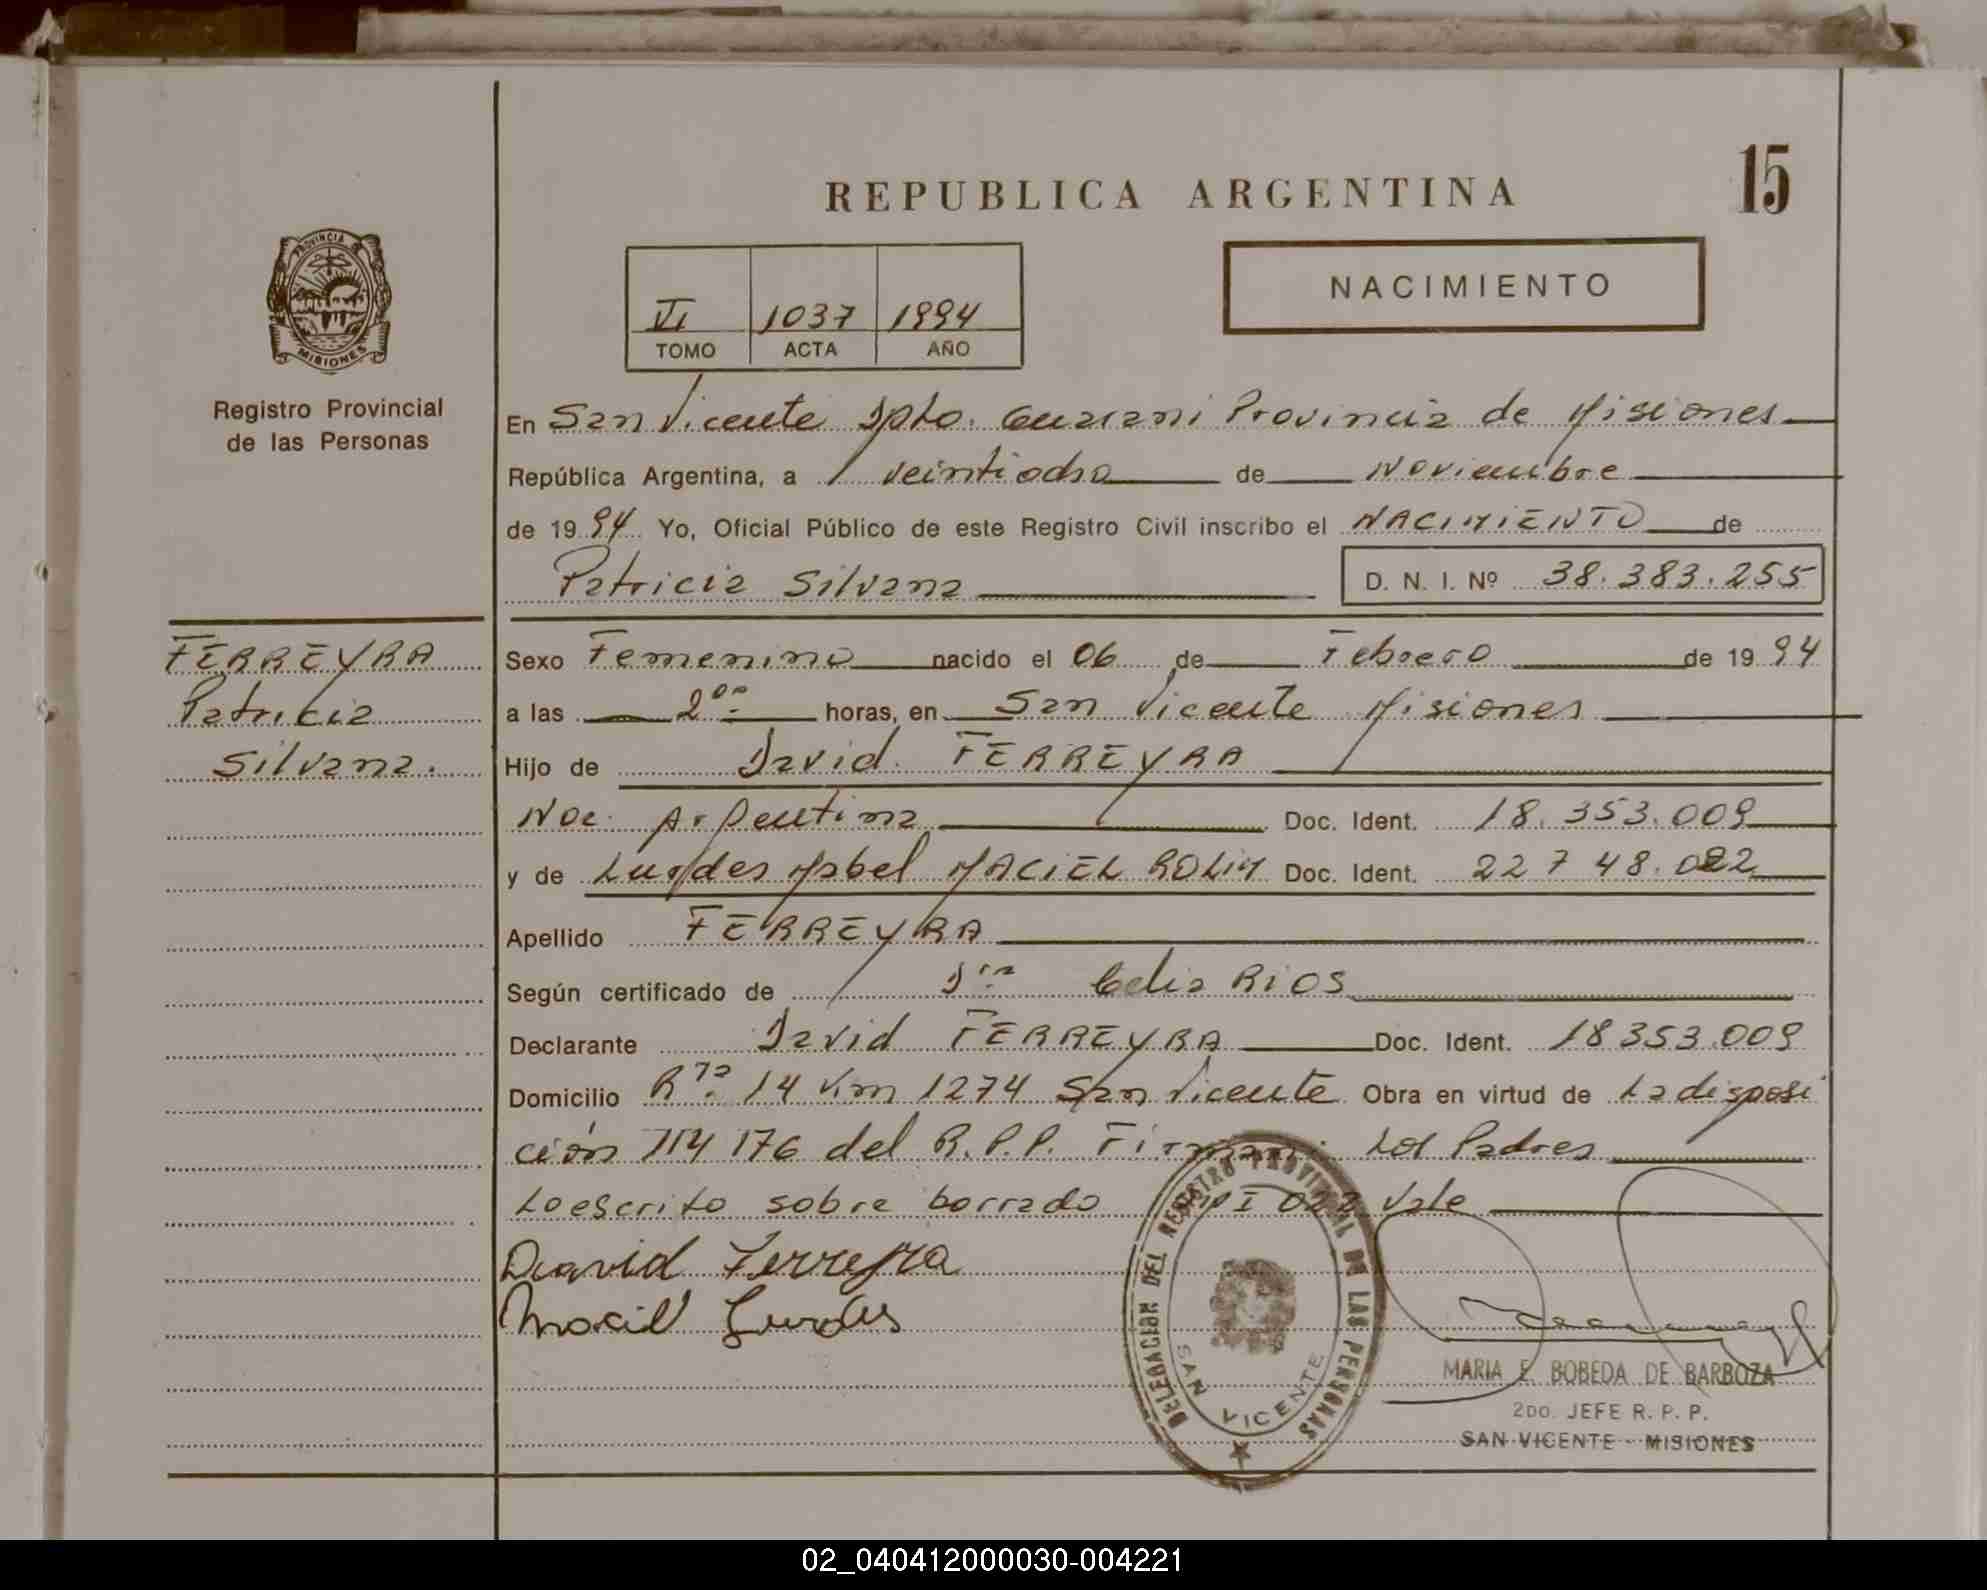 15
REPUBLICA ARGENTINA
NACIMIENTO
VI 1037 1994
TOMO ACTA AÑO
PROVINCIA DE MISIONES
Registro Provincial
de las Personas
En San Vicente Dpto. Guarani Provincia de Misiones
República Argentina, a veintiocho de Noviembre
de 1994 Yo, Oficial Público de este Registro Civil inscribo el NACIMIENTO de
Patricia Silvana D. N. I. Nº 38.383.255
FERREYRA
Patricia
Silvana.
Sexo Femenino nacido el 06 de Febrero de 1994
a las 2⁰⁰ horas, en San Vicente Misiones
Hijo de David FERREYRA
Nac. Argentina Doc. Ident. 18.353.009
y de Lurdes Mabel MACIEL ROLIM Doc. Ident. 22 748.022
Apellido FERREYRA
Según certificado de Dra Celia RIOS
Declarante David FERREYRA Doc. Ident. 18353.009
Domicilio Rta 14 Km 1274 San Vicente Obra en virtud de La disposi
ción 114 176 del R.P.P. Firman: Los Padres
Lo escrito sobre borrado 022 Vale
David Ferreyra
Maciel Lurdes
DELEGACION DEL REGISTRO PROVINCIAL DE LAS PERSONAS
SAN VICENTE
MARIA E. BOBEDA DE BARBOZA
2DO. JEFE R. P. P.
SAN VICENTE - MISIONES
02_040412000030-004221